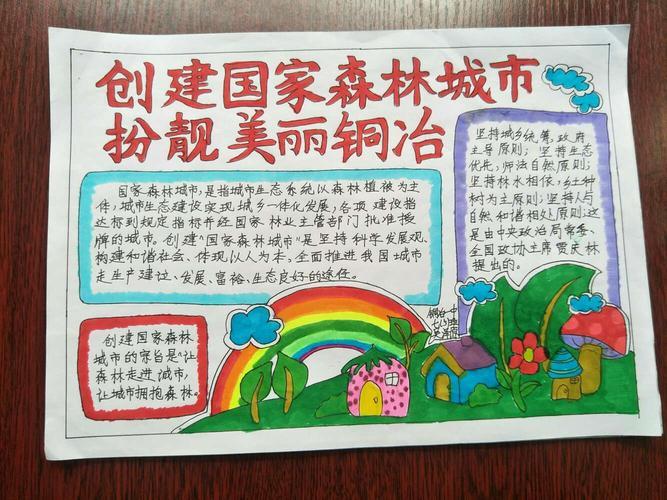 创建国家森林城市
扮靓美丽铜冶
国家森林城市，是指城市生态系统以森林植被为主
体，城市生态建设实现城乡一体化发展，各项建设指
达标到规定指标并经国家林业主管部门批准授
牌的城市。创建"国家森林城市"是坚持科学发展观、
构建和谐社会、体现以人为本，全面推进我国城市
走生产建设、发展、富裕、生态良好的途任。
坚持城乡统筹，政府
主导原则；坚持生态
优先，师法自然原则；
坚持林水相依，乡土种
树为主原则；坚持人与
自然和谐相处原则；这
是由中央政治局常委、
全国政协主席贾庆林
提出的。
创建国家森林
城市的宗旨是：让
森林走进城市，
让城市拥抱森林。
铜冶一中